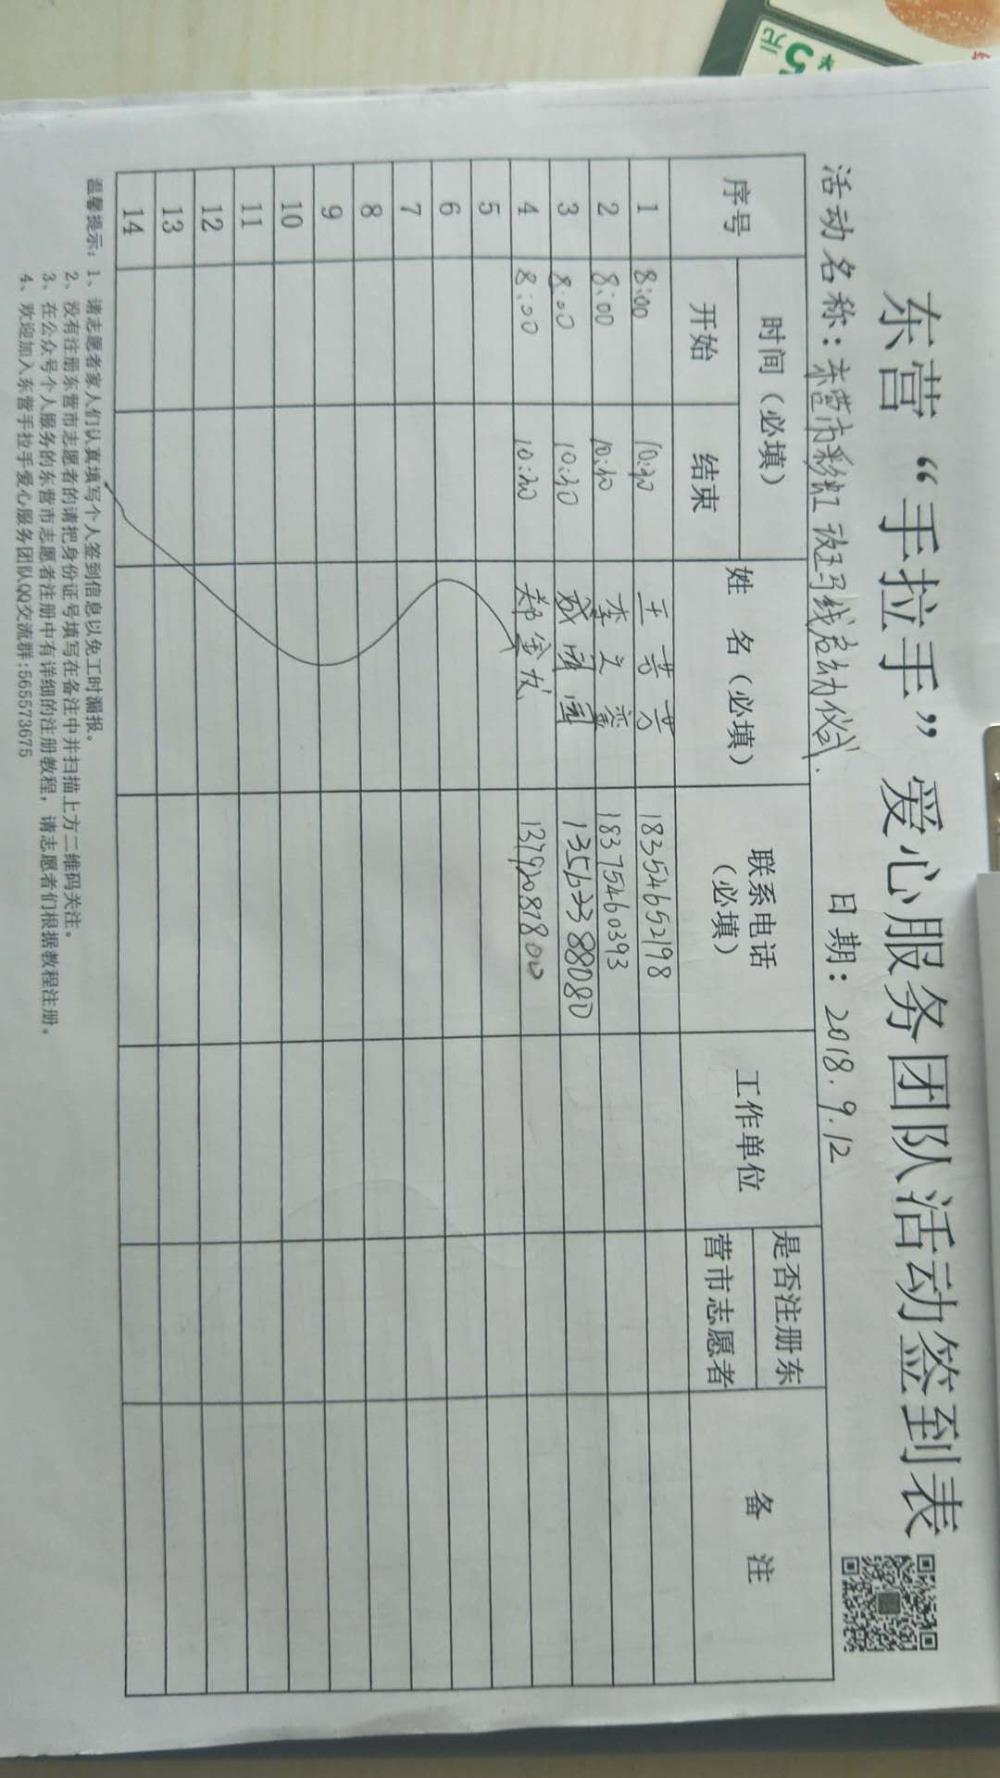 东营“手拉手”爱心服务团队活动签到表
活动名称：东营市彩虹斑马线启动仪式. 日期：2018.9.12
序号 时间（必填） 姓 名（必填） 联系电话（必填） 工作单位 是否注册东营市志愿者 备 注
开始 结束
1 8:00 10:30 王芸芸 18354652198
2 8:00 10:30 李文鑫 18375460393
3 8:00 10:30 国 13562388080
4 8:00 10:30 郑金 13792087800
5
6
7
8
9
10
11
12
13
14
温馨提示：1、请志愿者家人们认真填写个人签到信息以免工时漏报。
2、没有注册东营市志愿者的请把身份证号填写在备注中并扫描上方二维码关注。
3、在公众号个人服务的东营市志愿者注册中有详细的注册教程，请志愿者们根据教程注册。
4、欢迎加入东营手拉手爱心服务团队QQ交流群:565573675
5元